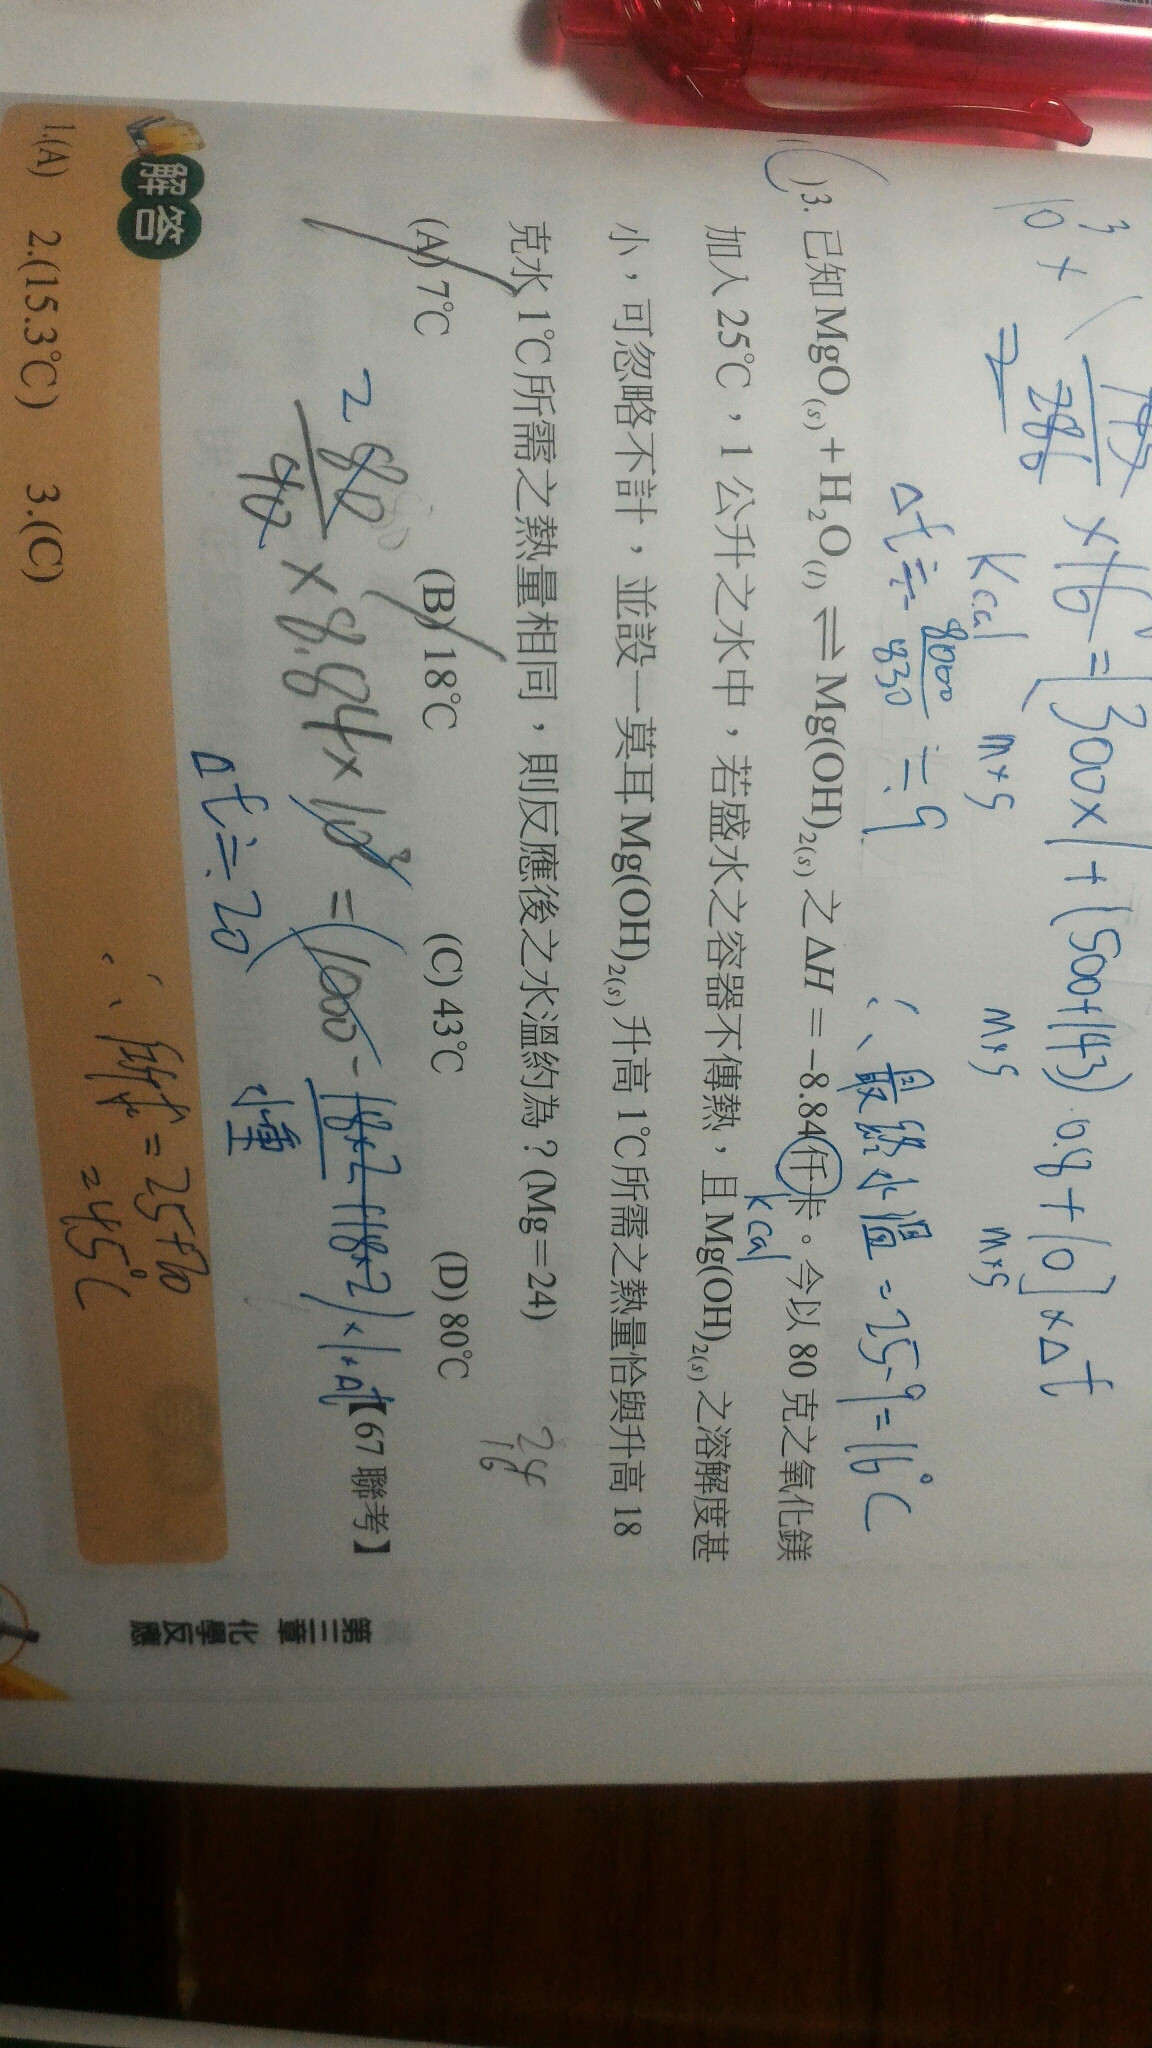 10³ + ( 143/286 × 16 = [300×1 + (500+143)·0.8 + 10] × Δt
2
Kcal m×s m×s m×s
Δt ≒ 8000/830 ≒ 9 ∴最終水溫 = 25-9 = 16°C
( )3. 已知 MgO(s) + H₂O(l) ⇌ Mg(OH)₂(s) 之 ΔH = -8.84 仟卡。今以 80 克之氧化鎂
kcal
加入 25℃,1 公升之水中,若盛水之容器不傳熱,且 Mg(OH)₂(s) 之溶解度甚
小,可忽略不計,並設一莫耳 Mg(OH)₂(s) 升高 1℃所需之熱量恰與升高 18
克水 1℃所需之熱量相同,則反應後之水溫約為?(Mg=24)
24
16
(A) 7℃ (B) 18℃ (C) 43℃ (D) 80℃
【67 聯考】
2 80/40 × 8.84 × 10³ = (1000 - 18×2 + 18×2) × 1 × Δt
水重
Δt ≒ 20
解答
∴ = 25+20
= 45°C
1.(A) 2.(15.3℃) 3.(C)
第三章 化學反應